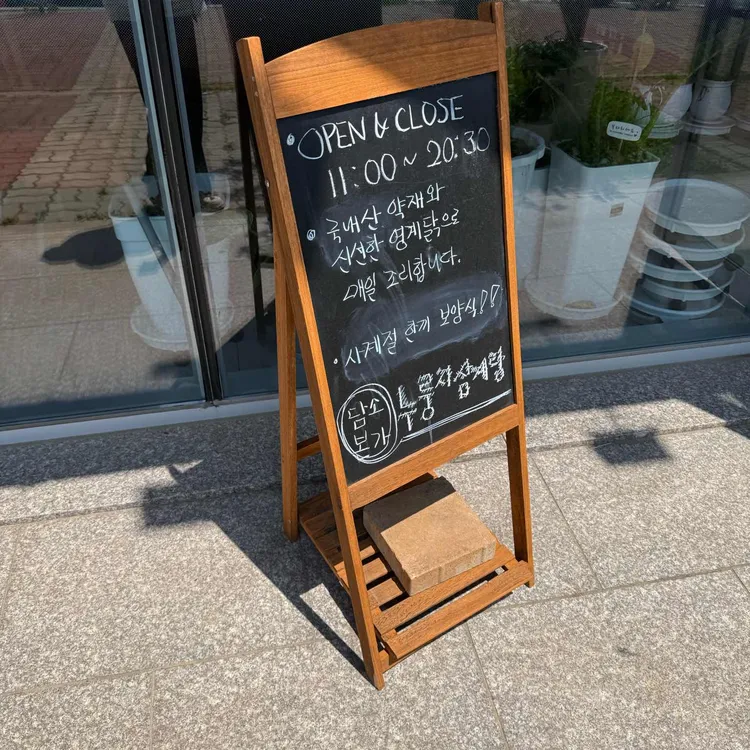 OPEN & CLOSE
11:00 ~ 20:30
국내산 약재와
신선한 영계닭으로
매일 조리합니다.
사계절 한끼 보양식!!
담소
보가
누룽지삼계탕